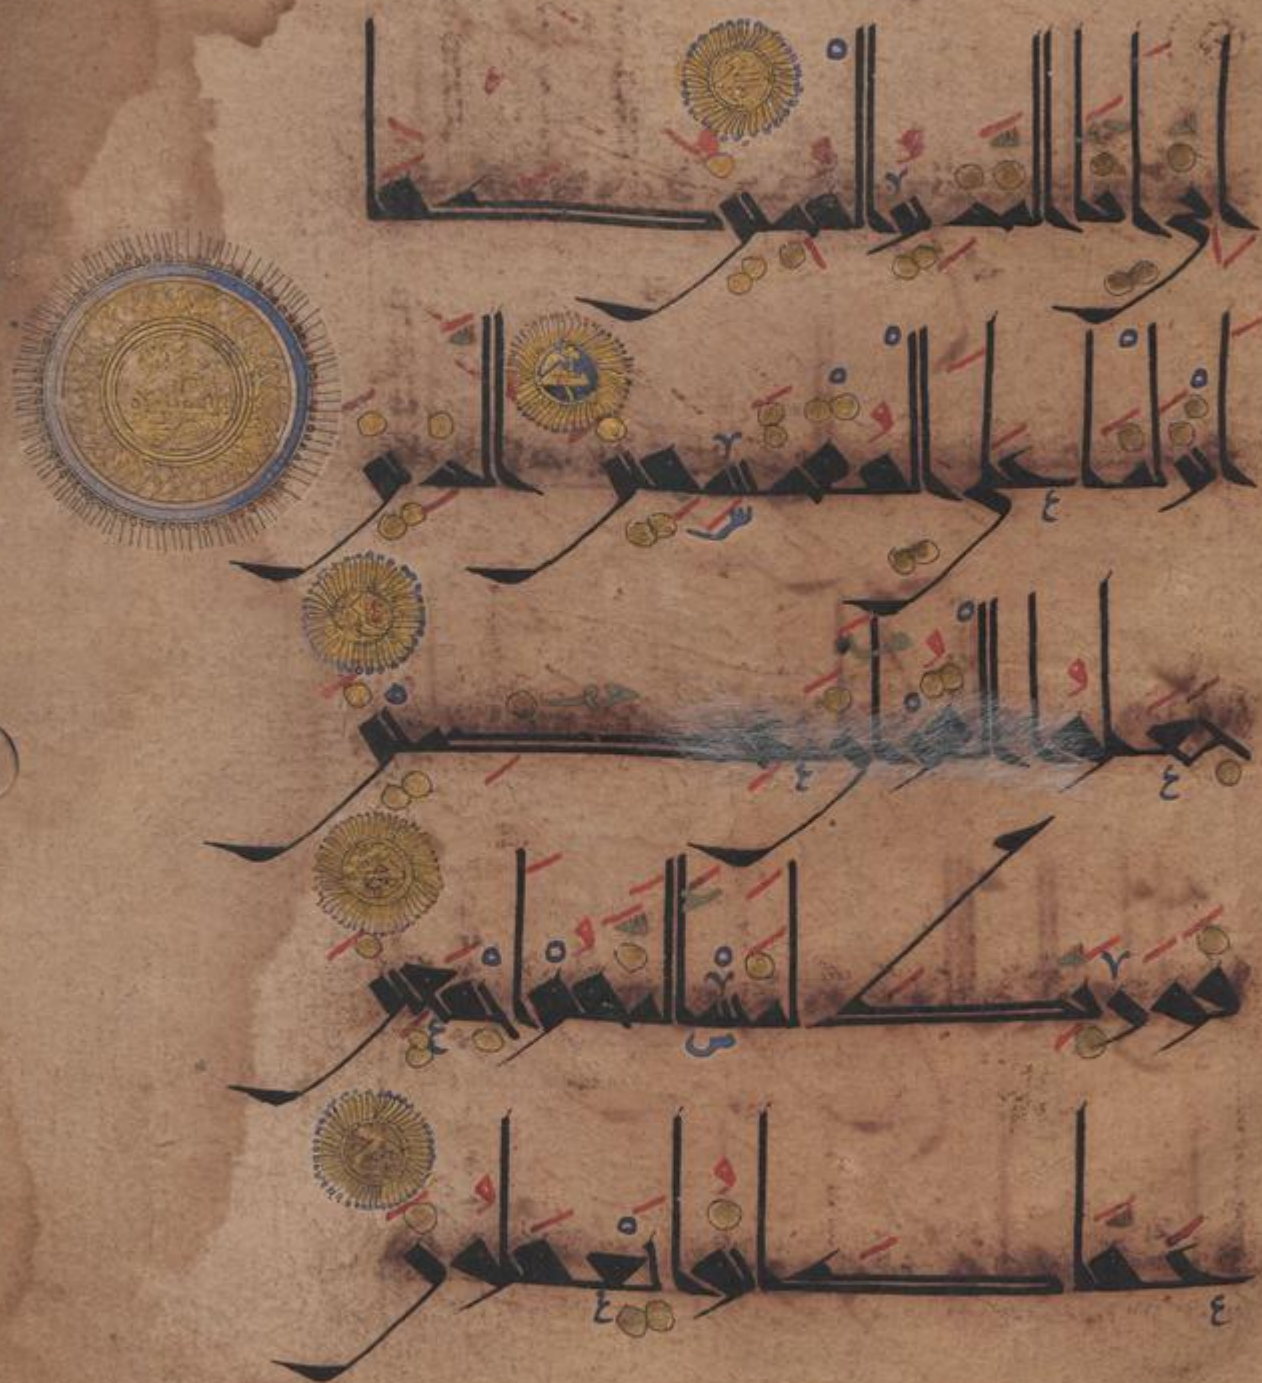 إِنِّي أَنَا النَّذِيرُ الْمُبِينُ كَمَا
أَنْزَلْنَا عَلَى الْمُقْتَسِمِينَ الَّذِينَ
جَعَلُوا الْقُرْآنَ عِضِينَ
فَوَرَبِّكَ لَنَسْأَلَنَّهُمْ أَجْمَعِينَ
عَمَّا كَانُوا يَعْمَلُونَ